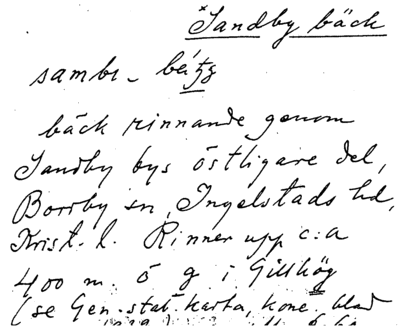 *Sandby bäck
bäck rinnande genom
Sandby bys östligare del,
Borrby sn, Ingelstads hd,
Krist. l. Rinner upp c:a
400 m. ö g i Gillhög
(se Gen. stat. karta, kone. blad